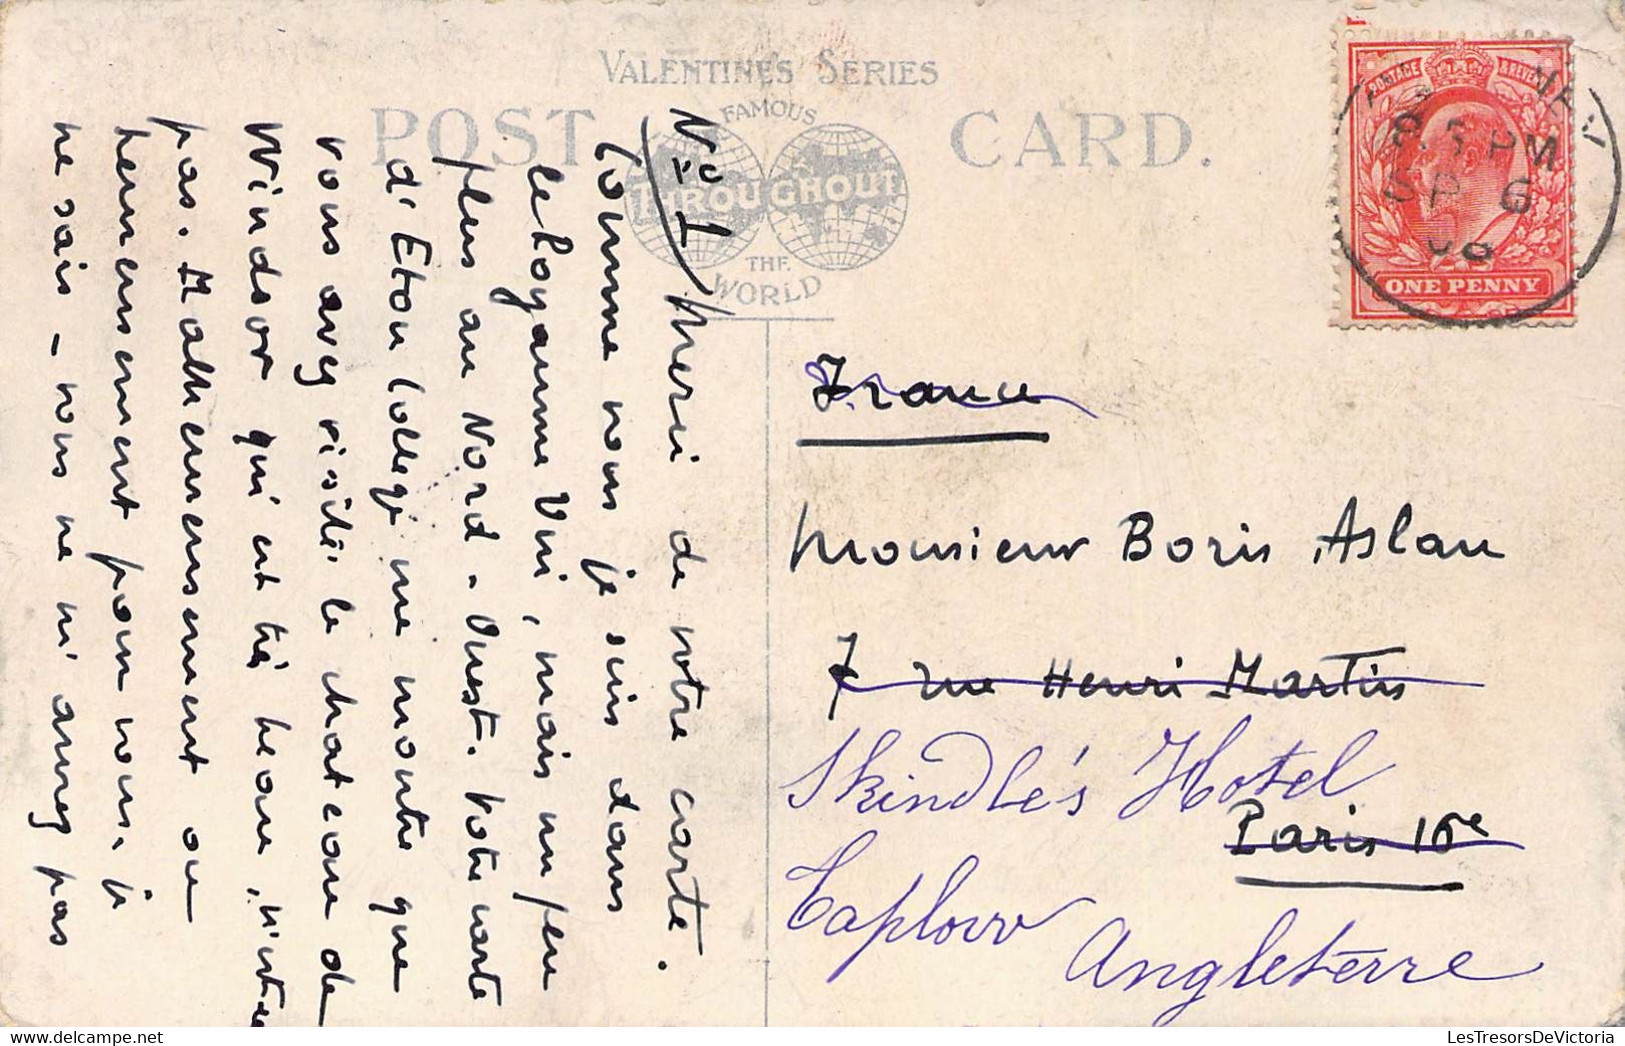 VALENTINE'S SERIES
POST CARD.
FAMOUS
THROUGHOUT
THE
WORLD
POSTAGE & REVENUE
8.5 PM
SP 6
06
ONE PENNY
No 1
Merci de votre carte.
Comme vous je suis dans
le Royaume Uni, mais un peu
plus au Nord-Ouest. Votre carte
d'Eton College me montre que
vous avez visité le chateau de
Windsor qui est très beau, n'est-ce
pas. Malheureusement ou
heureusement pour vous, je
ne sais - vous ne m'avez pas
France
Monsieur Boris Aslan
7 rue Henri Martin
Skindle's Hotel
Paris 16e
Taplow
Angleterre
LesTresorsDeVictoria